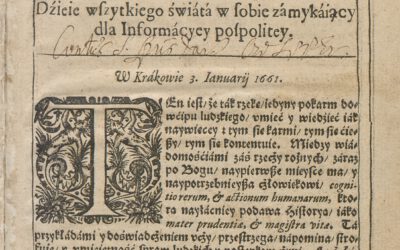 Dźieie wszytkiego świátá w sobie zámykáiący
dla Informácyey pospolitey.
W Krákowie 3. Ianuarij 1661.
TEn iest, że ták rzekę, iedyny pokarm do-
wćipu ludzkiego, vmieć y wiedźieć iák
naywięcey: tym się karmi, tym się ćie-
ßy, tym się kontentuie. Miedzy wiá-
domośćiámi záś rzeczy rożnych, záraz
po Bogu, naypierwße mieysce ma, y
naypotrzebnieyßa człowiekowi, cogni-
tio rerum, & actionum humanarum, kto-
ra náyłácniey podawa Historya, iáko
mater prudentiæ, & magistra vitæ. Tá
przykłádámi y doświádczeniem vczy, przestrzega, nápomina, stro-